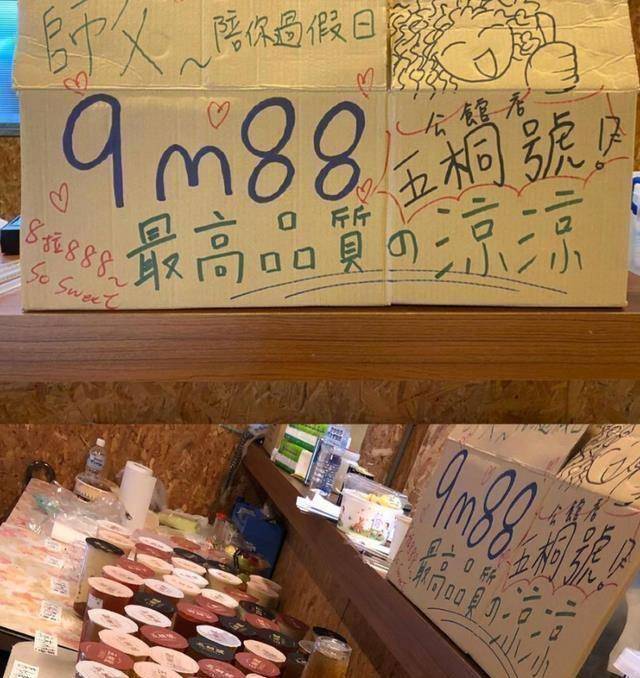 師父
～陪你過假日
9m88
公館店
五桐號
8拉888～
So Sweet
最高品質の涼涼
9m88
公館店
五桐號
最高品質の涼涼